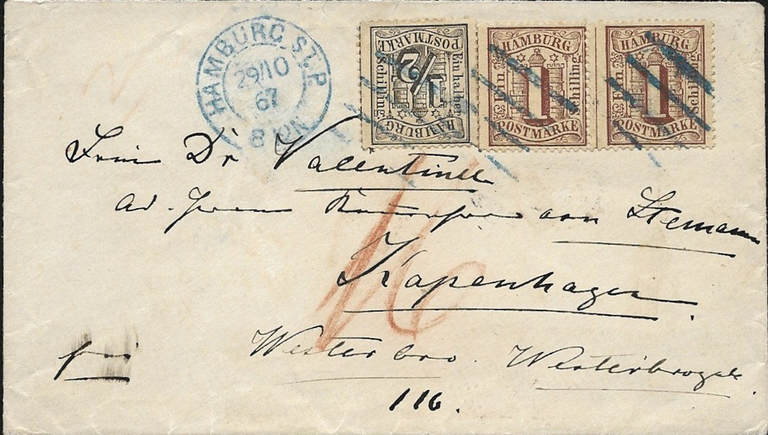 HAMBURG ST.P.
29/10
67
8
HAMBURG
Ein halber
Schilling
1/2
POSTMARKE
HAMBURG
Ein
1
Schilling
POSTMARKE
HAMBURG
Ein
1
Schilling
POSTMARKE
Dr Valentiner
von Stemann
Kopenhagen.
Westerbro. Westerbrogade
116.